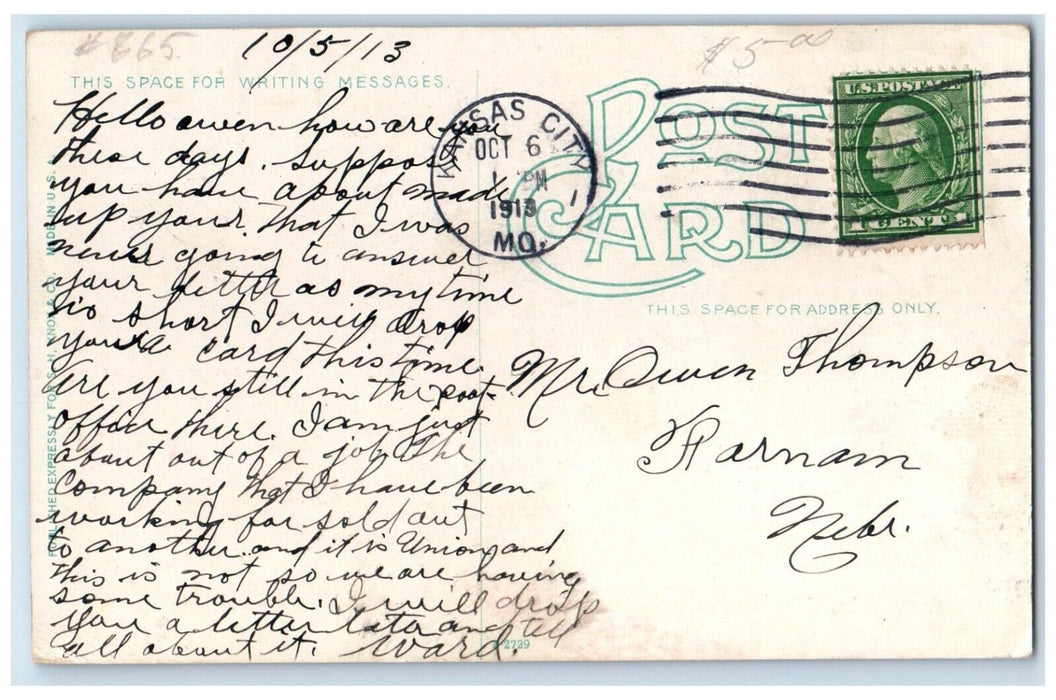 #865
10/5/13
$5.00
THIS SPACE FOR WRITING MESSAGES.
Hello owen how are you
these days. Suppose
you have about made
up your, that I was
never going to answer
your letter as my time
is short I will drop
you a card this time
Are you still in the post-
office there. I am just
about out of a job, the
Company that I have been
working for sold out
to another and it is Union, and
this is not so we are having
some trouble. I will drop
you a letter later and tell
all about it. Ward.
KANSAS CITY
OCT 6
1 PM
1913
MO.
1
POST
CARD
U.S. POSTAGE
1 CENT 1
THIS SPACE FOR ADDRESS ONLY.
Mr. Owen Thompson
Farnam
Nebr.
PUBLISHED EXPRESSLY FOR S. H. KNOX & CO. MADE IN U.S.
2729